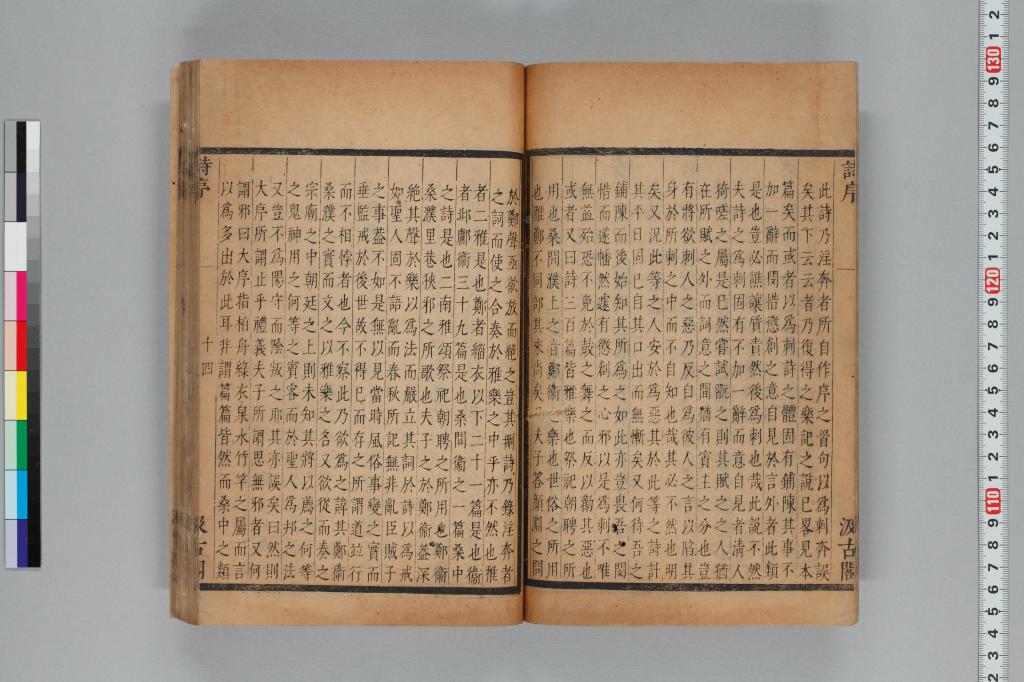 詩序
汲古閣
此詩乃淫奔者所自作序之首句以爲刺奔誤
矣其下云云者乃復得之樂記之說已畧見本
篇矣而或者以爲刺詩之體固有鋪陳其事不
加一辭而閔惜懲創之意自見於言外者此類
是也豈必譙讓質責然後爲刺也哉此說不然
夫詩之爲刺固有不加一辭而意自見者清人
猗嗟之屬是已然嘗試翫之則其賦之之人猶
在所賦之外而詞意之間猶有賓主之分也豈
有將欲刺人之惡乃反自爲彼人之言以陷其
身於所刺之中而不自知也哉其必不然也明
矣又況此等之人安於爲惡其於此等之詩計
其平日固已自其口出而無慚矣又何待吾之
鋪陳而後始知其所爲之如此亦豈畏吾之閔
惜而遂幡然遽有懲創之心邪以是爲刺不惟
無益殆恐不免於鼓之舞之而反以勸其惡也
或者又曰詩三百篇皆雅樂也祭祀朝聘之所
用也桑間濮上之音鄭衞之樂也世俗之所用
也雅鄭不同部其來尚矣 夫子答顏淵之問
於鄭聲亟欲放而絶之豈其刪詩乃錄淫奔者
之詞而使之合奏於雅樂之中乎亦不然也雅
者二雅是也鄭者緇衣以下二十一篇是也衞
者邶鄘衞三十九篇是也桑間衞之一篇桑中
之詩是也二南雅頌祭祀朝聘之所用也鄭衞
桑濮里巷狹邪之所歌也夫子之於鄭衞葢深
絶其聲於樂以爲法而嚴立其詞於詩以爲戒
如聖人固不語亂而春秋所記無非亂臣賊子
之事葢不如是無以見當時風俗事變之實而
垂監戒於後世故不得已而存之所謂道竝行
而不相悖者也今不察此乃欲爲之諱其鄭衞
桑濮之實而文之以雅樂之名又欲從而奏之
宗廟之中朝廷之上則未知其將以薦之何等
之鬼神用之何等之賓客而於聖人爲邦之法
又豈不爲陽守而陰叛之耶其亦誤矣曰然則
大序所謂止乎禮義夫子所謂思無邪者又何
謂邪曰大序指柏舟綠衣泉水竹竿之屬而言
以爲多出於此耳非謂篇篇皆然而桑中之類
詩序
十四
汲古閣